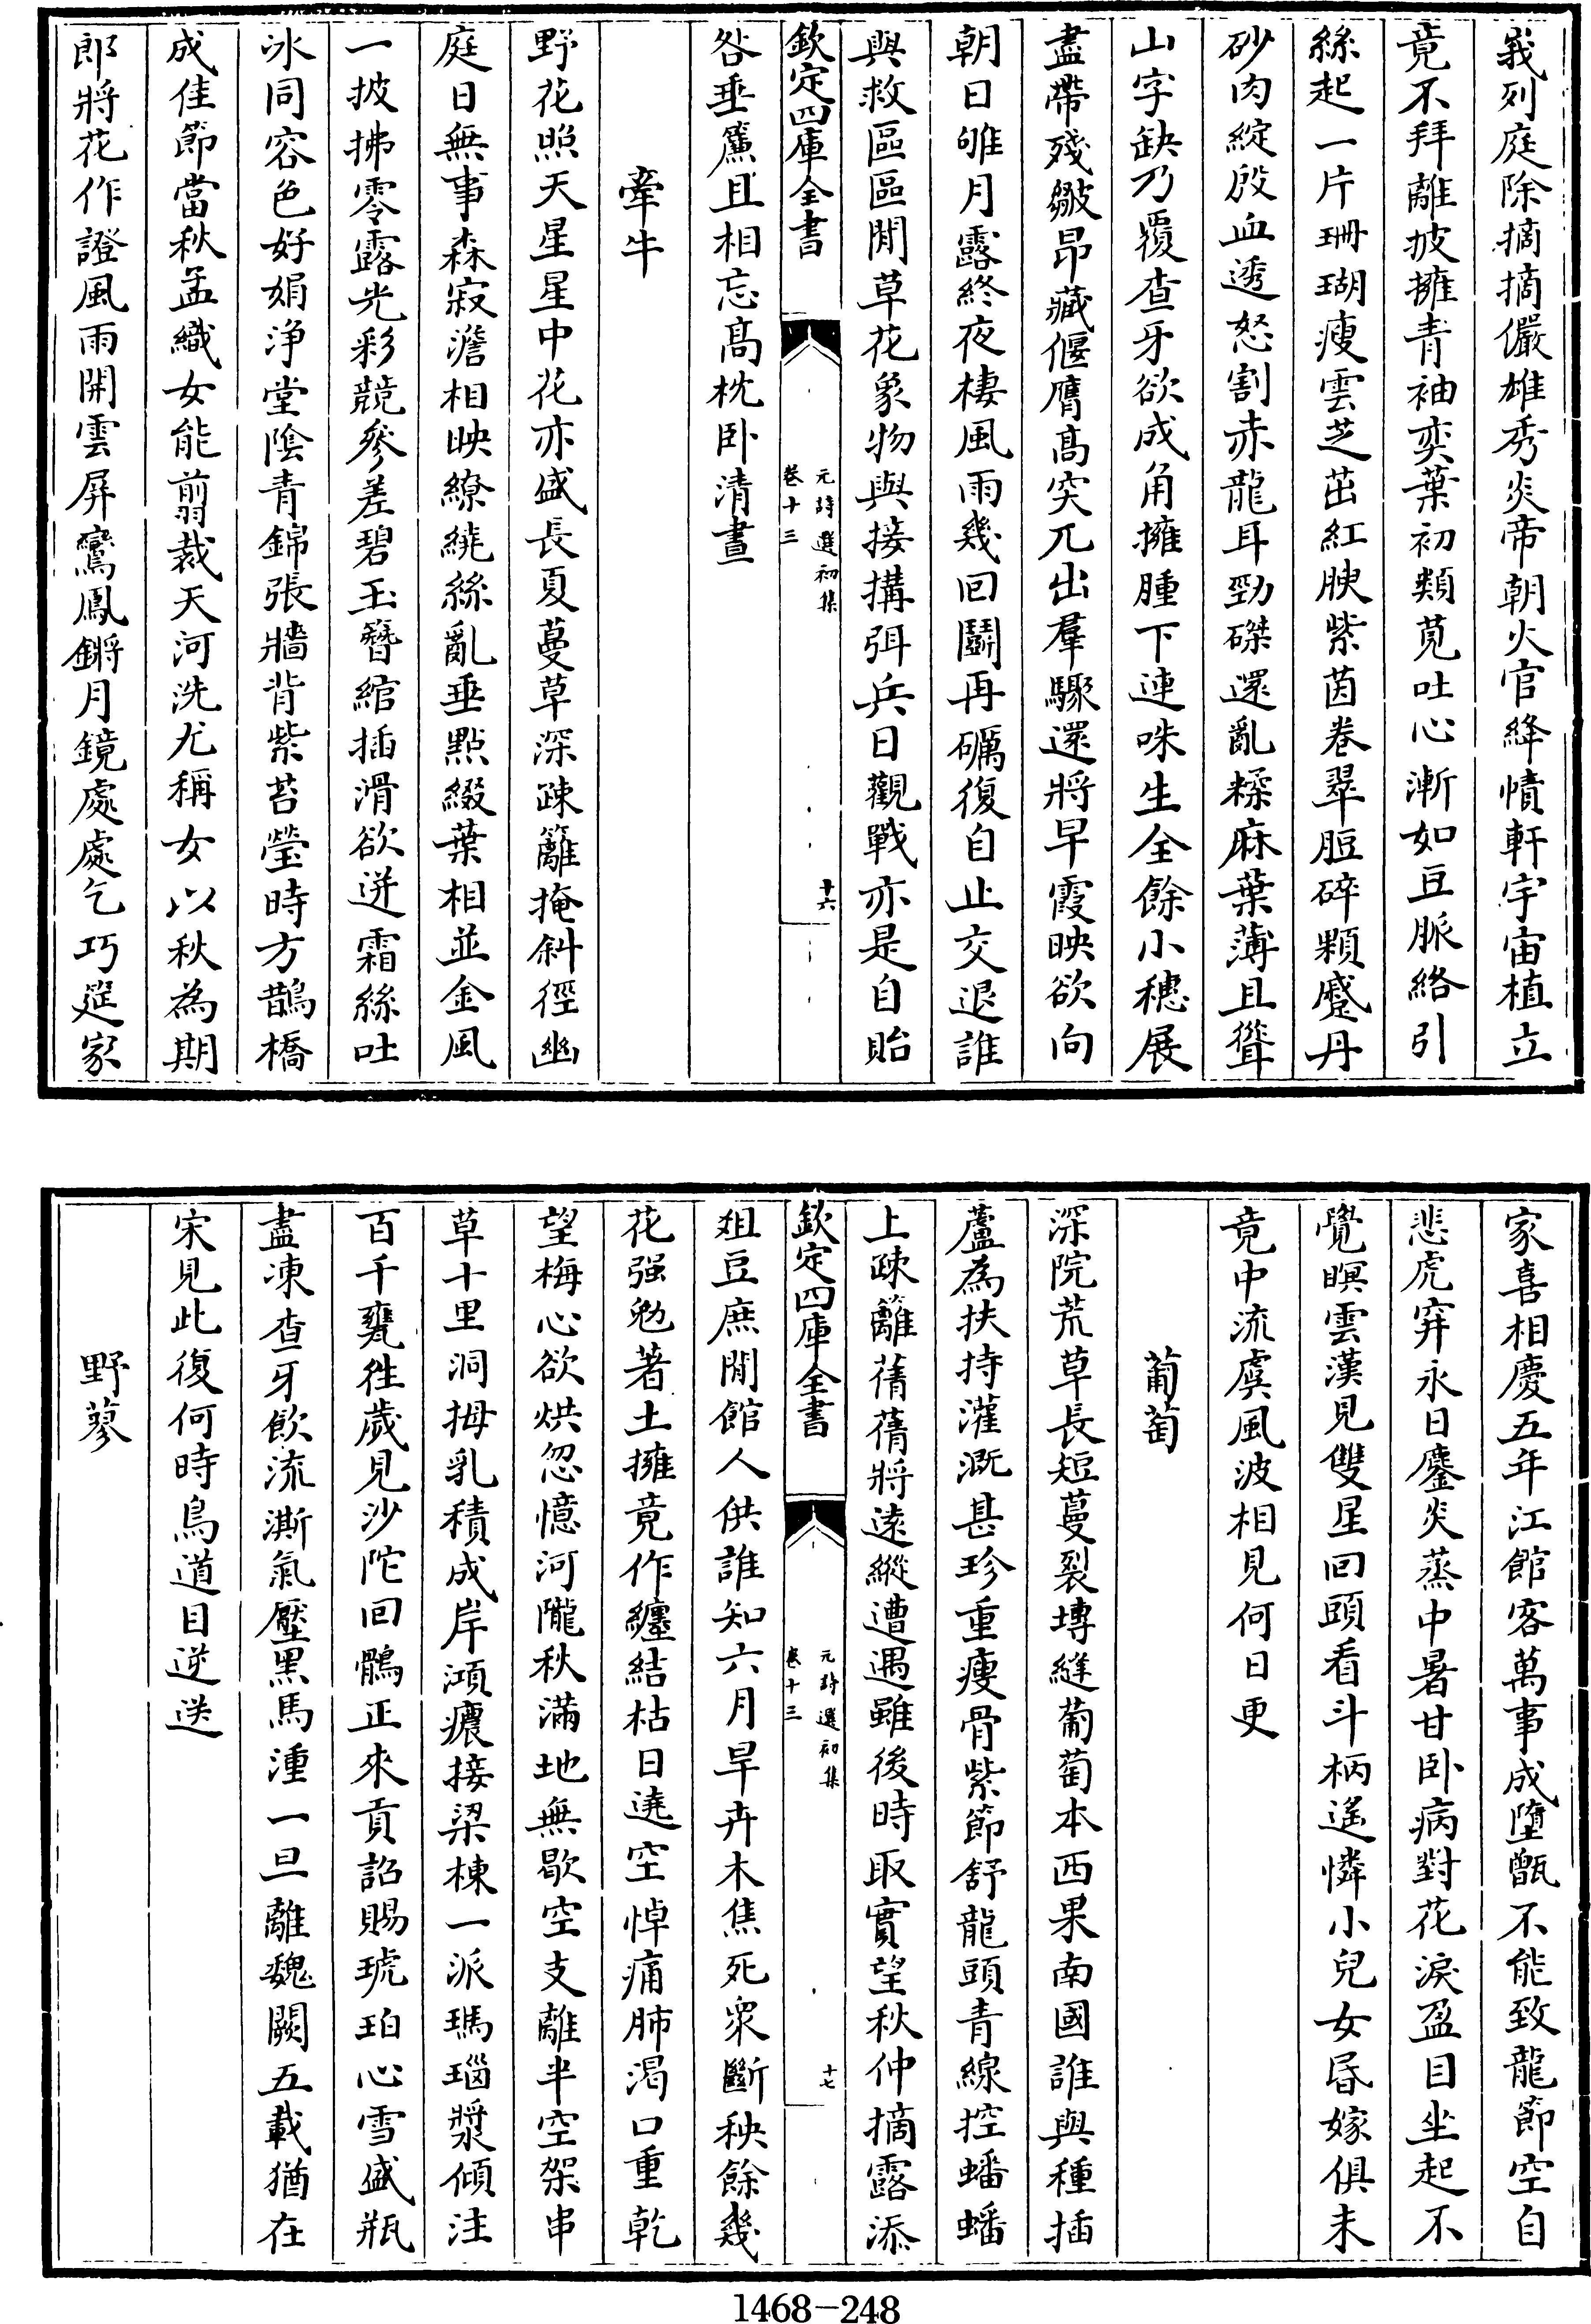 峩列庭除摘摘儼雄秀炎帝朝火官絳幘軒宇宙植立
竟不拜離披擁青袖奕葉初類莧吐心漸如豆脈絡引
絲起一片珊瑚瘦雲芝茁紅腴紫茵卷翠脰碎顆蹙丹
砂肉綻殷血透怒割赤龍耳勁磔還亂糅麻葉薄且聳
山字缺乃覆查牙欲成角擁腫下連咮生全餘小穗展
盡帶殘皺昂藏偃膺高突兀出羣驟還將早霞映欲向
朝日雊月露終夜棲風雨幾回鬭再礪復自止交退誰
與救區區閒草花象物與接搆弭兵日觀戰亦是自貽
欽定四庫全書
元詩選初集
卷十三
十六
咎垂簾且相忘高枕卧清晝
牽牛
野花照天星星中花亦盛長夏蔓草深疎籬掩斜徑幽
庭日無事森寂澹相映繚繞絲亂垂點綴葉相並金風
一披拂零露光彩競參差碧玉簪綰插滑欲迸霜絲吐
冰同容色好娟淨堂陰青錦張牆背紫苔瑩時方鵲橋
成佳節當秋孟織女能翦裁天河洗尤稱女以秋為期
郎將花作證風雨開雲屏鸞鳳鏘月鏡處處乞巧筵家
家喜相慶五年江館客萬事成墮甑不能致龍節空自
悲虎穽永日鏖炎蒸中暑甘卧病對花淚盈目坐起不
覺暝雲漢見雙星回頭看斗柄遙憐小兒女昏嫁俱未
竟中流虞風波相見何日更
葡萄
深院荒草長短蔓裂塼縫葡萄本西果南國誰與種插
蘆為扶持灌溉甚珍重瘦骨紫節舒龍頭青線控蟠蟠
上疎籬蒨蒨將遠縱遭遇雖後時取實望秋仲摘露添
欽定四庫全書
元詩選初集
卷十三
十七
俎豆庶閒館人供誰知六月旱卉木焦死衆斷秧餘幾
花强勉著土擁竟作纏結枯日遶空悼痛肺渴口重乾
望梅心欲烘忽憶河隴秋滿地無歇空支離半空架串
草十里洞拇乳積成岸澒㶞接梁棟一派瑪瑙漿傾注
百千甕徃歲見沙陀回鶻正來貢詔賜琥珀心雪盛瓶
盡凍查牙飲流澌氣壓黑馬湩一旦離魏闕五載猶在
宋見此復何時鳥道目逆送
野蓼
1468－248